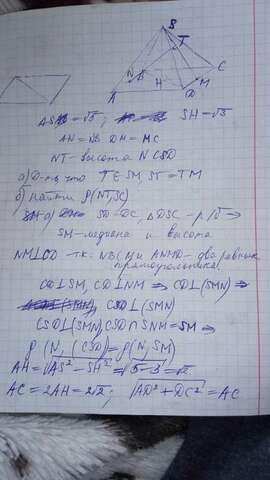 S
T
N
B
C
H
M
A
D
AS = √5; SH = √3
AN = NB DM = MC
NT - высота NCSD
а) Д-ть, что T∈SM, ST = TM
б) найти ρ(NT, SC)
а) SD = DC, △DSC - р/б ⇒
SM - медиана и высота
NM⊥CD - т.к. NBCM и ANMD - два равных
прямоугольника
CD⊥SM, CD⊥NM ⇒ CD⊥(SMN) ⇒
CSD⊥(SMN)
CSD⊥(SMN), CSD∩SNM = SM ⇒
ρ(N, (CSD)) = ρ(N, SM)
AH = √AS² - SH² = √5-3 = √2
AC = 2AH = 2√2; √AD² + DC² = AC